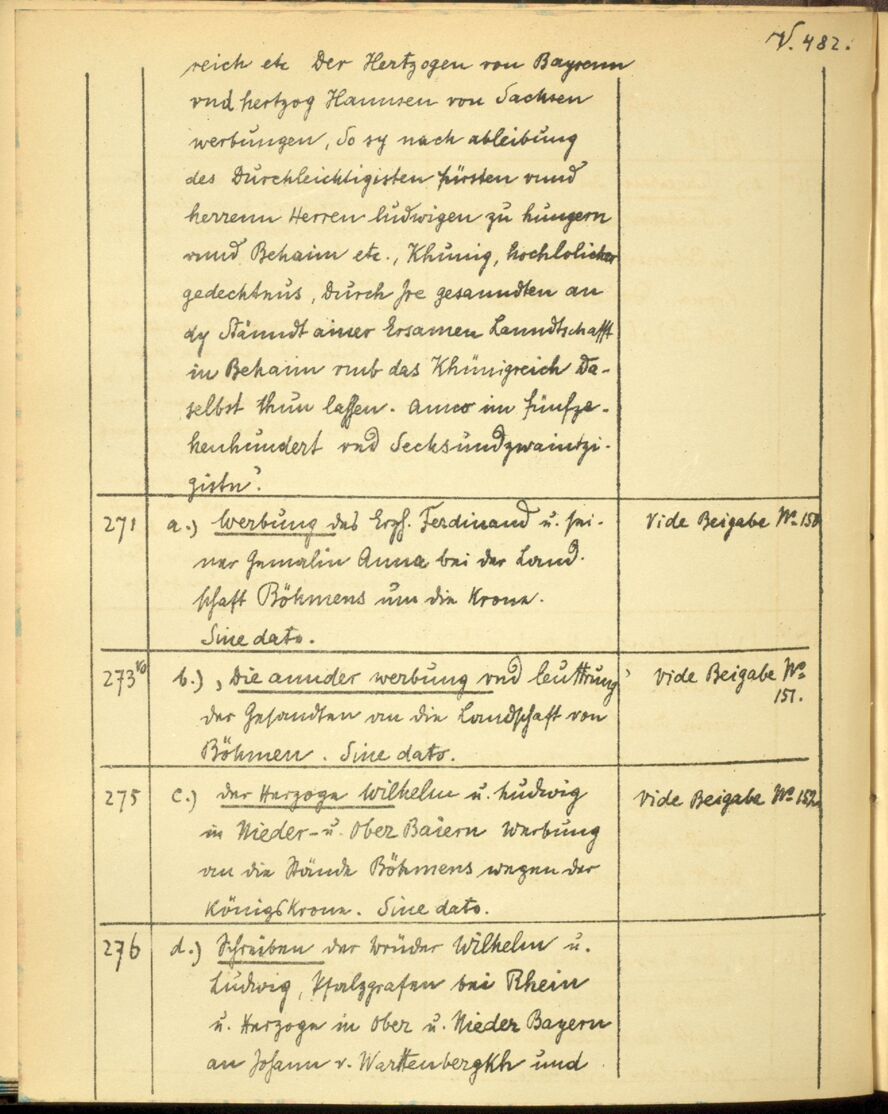 V. 482.
reich etc Der Hertzogen von Bayrenn
vnd hertzog Hannsen von Sachsen
werbungen, So sy nach ableibung
des Durchleichtigisten fürsten vnnd
herrenn Herren ludwigen zu hungern
vnnd Behaim etc., Khunig, hochlolicher
gedechtnus, Durch Jre gesanndten an
dy Stänndt ainer Ersamen Lanndtschafft
in Behaim vmb das Khünigreich Da-
selbst thun lassen. Anno im fünfze-
henhundert vnd Sechsundzwaintzi-
gistn".
271 a.) Werbung des Erzh. Ferdinand u. sei- Vide Beigabe No. 150
ner Gemalin Anna bei der Land-
schaft Böhmens um die Krone.
Sine dato.
273vo b.) „Die annder werbung vnd leuttrung" Vide Beigabe No.
151.
der Gesandten an die Landschaft von
Böhmen. Sine dato.
275 c.) der Herzoge Wilhelm u. Ludwig Vide Beigabe No 152.
in Nieder- u. Ober Baiern Werbung
an die Stände Böhmens wegen der
Königskrone. Sine dato.
276 d.) Schreiben der Brüder Wilhelm u.
Ludwig, Pfalzgrafen bei Rhein
u. Herzoge in Ober u. Nieder Bayern
an Johann v. Warttenbergkh und